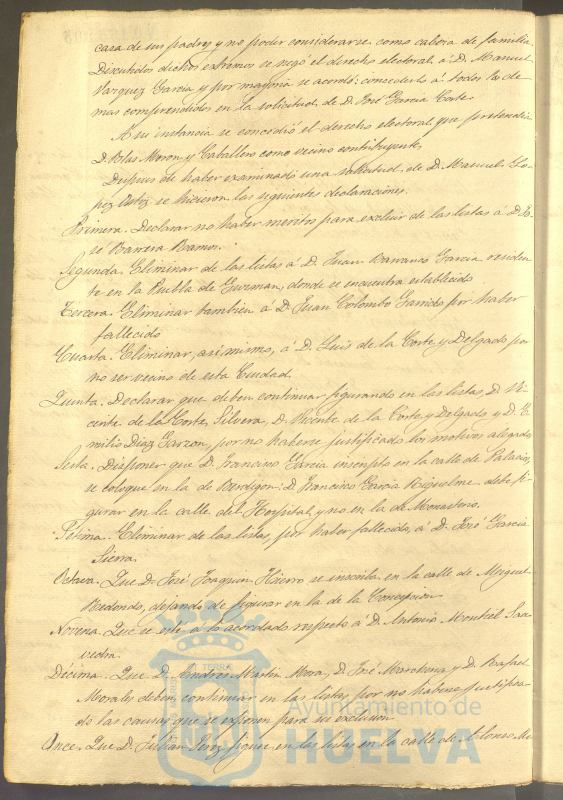 casa de sus padres y no poder considerarse como cabeza de familia.
Discutidos dichos extremos se negó el derecho electoral á D. Manuel
Vazquez Garcia y por mayoria se acordó: concederlo á todos los de-
mas comprendidos en la solicitud de D. José Garcia Corte.
A su instancia se concedió el derecho electoral que pretendia
D. Blas Moron y Caballero como vecino contribuyente.
Despues de haber examinado una solicitud de D. Manuel Lo-
pez Ortiz se hicieron las siguientes declaraciones.
Primera. Declarar no haber meritos para excluir de las listas á D. Jo-
se Barrera Ramos.
Segunda. Eliminar de las listas á D. Juan Barranco Garcia residen-
te en la Puebla de Guzman, donde se encuentra establecido
Tercera. Eliminar tambien á D. Juan Colombo Garrido por haber
fallecido
Cuarta. Eliminar, asi mismo, á D. Luis de la Corte y Delgado, por
no ser vecino de esta Ciudad.
Quinta. Declarar que deben continuar figurando en las listas, D. Vi-
cente de la Corte Silvera, D. Vicente de la Corte y Delgado y D. E-
milio Diaz Garzon, por no haberse justificado los motivos alegados
Sesta. Disponer que D. Francisco Garcia inscripto en la calle de Palacios,
se coloque en la de Berdigon: D. Francisco Garcia Riquelme debe fi-
gurar en la calle del Hospital y no en la de Monasterio.
Sétima. Eliminar de las listas, por haber fallecido, á D. José Garcia
Sierra.
Octava. Que D. José Joaquin Hierro se inscriba en la calle de Miguel
Redondo, dejando de figurar en la de la Concepcion
Novena. Que se esté á lo acordado respecto á D. Antonio Montiel Saa-
vedra.
Décima. Que D. Andres Martin Mora, D. José Marchena y D. Rafael
Morales deben continuar en las listas por no haberse justifica-
do las causas que se exponen para su exclusion
Once. Que D. Julian Perez figure en las listas en la calle de Alonso Me
Ayuntamiento de
HUELVA